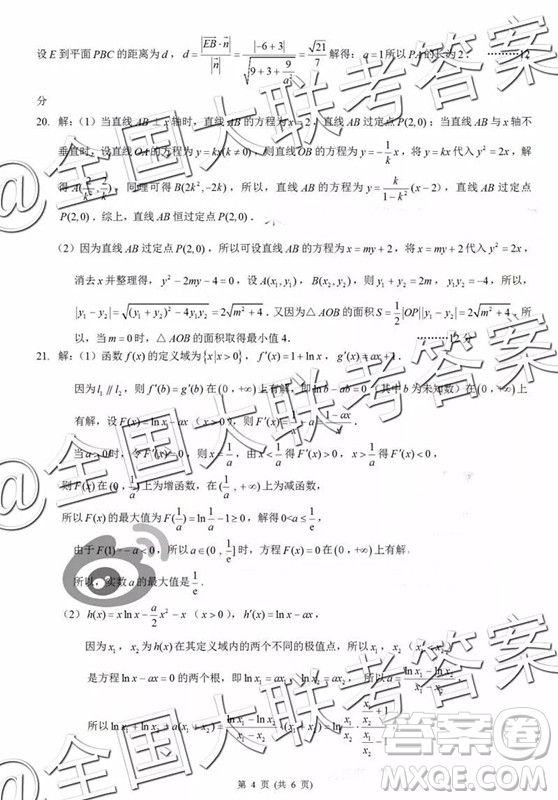 设 E 到平面 PBC 的距离为 d，d = |EB·n| / |n| = |−6+3| / √(9+3+9/a²) = √21/7 解得：a = 1 所以 PA 的长为 2. ………12
分
20. 解：（1）当直线 AB ⊥ x 轴时，直线 AB 的方程为 x = 2，直线 AB 过定点 P(2,0)；当直线 AB 与 x 轴不
垂直时，设直线 OA 的方程为 y = kx(k ≠ 0)，则直线 OB 的方程为 y = −1/k x，将 y = kx 代入 y² = 2x，解
得 A(2/k², 2/k)，同理可得 B(2k², −2k)，所以，直线 AB 的方程为 y = k/(1−k²) (x−2)，直线 AB 过定点
P(2,0)．综上，直线 AB 恒过定点 P(2,0)．
（2）因为直线 AB 过定点 P(2,0)，所以可设直线 AB 的方程为 x = my + 2，将 x = my + 2 代入 y² = 2x，
消去 x 并整理得，y² − 2my − 4 = 0，设 A(x₁, y₁)，B(x₂, y₂)，则 y₁ + y₂ = 2m，y₁y₂ = −4，所以，
|y₁ − y₂| = √((y₁ + y₂)² − 4y₁y₂) = 2√(m² + 4)．又因为△AOB 的面积 S = 1/2 |OP||y₁ − y₂| = 2√(m² + 4)，所
以，当 m = 0 时，△AOB 的面积取得最小值 4． ………12 分
21. 解：（1）函数 f(x) 的定义域为 {x|x > 0}，f′(x) = 1 + ln x，g′(x) = ax + 1
因为 l₁ // l₂，则 f′(b) = g′(b) 在 (0，+∞) 上有解，即 ln b − ab = 0（其中 b 为未知数）在 (0，+∞) 上
有解，设 F(x) = ln x − ax（x > 0），则 F′(x) = 1/x − a = (1−ax)/x
当 a > 0 时，令 F′(x) = 0，则 x = 1/a，由 x < 1/a 得 F′(x) > 0，x > 1/a 得 F′(x) < 0，
则 F(x) 在 (0，1/a) 上为增函数，在 (1/a，+∞) 上为减函数，
所以 F(x) 的最大值为 F(1/a) = ln 1/a − 1 ≥ 0，解得 0 < a ≤ 1/e
由于 F(1) = −a < 0，所以 a ∈ (0，1/e] 时，方程 F(x) = 0 在 (0，+∞) 上有解
所以，实数 a 的最大值是 1/e．
（2）h(x) = x ln x − a/2 x² − x（x > 0），h′(x) = ln x − ax，
因为 x₁，x₂ 为 h(x) 在其定义域内的两个不同的极值点，所以 x₁，x₂
是方程 ln x − ax = 0 的两个根，即 ln x₁ = ax₁，ln x₂ = ax₂ 所以 a = (ln x₁ − ln x₂)/(x₁ − x₂)
所以
第 4 页 (共 6 页)
@全国大联考答案
答案圈
MXQE.COM